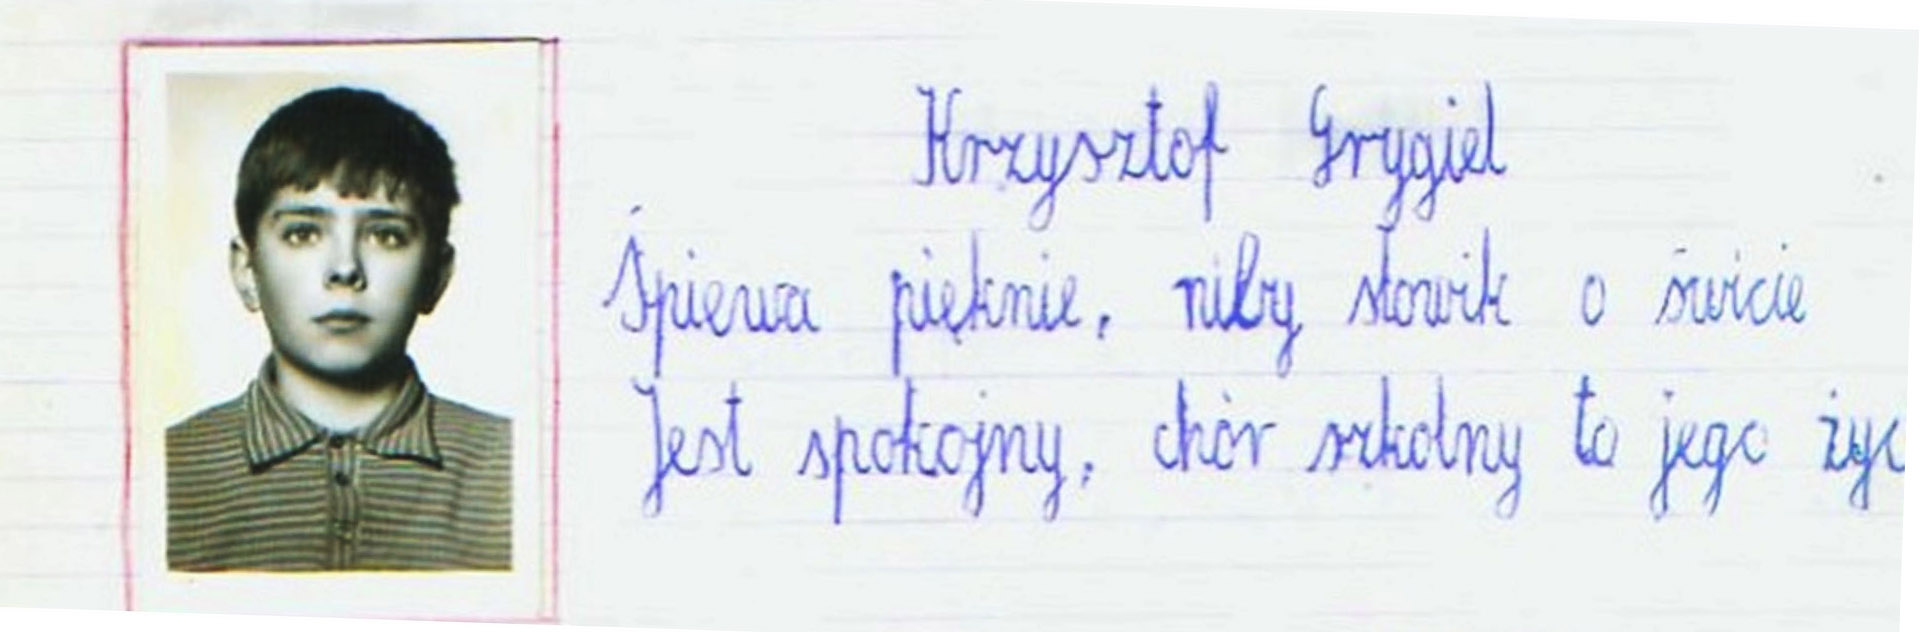 Krzysztof Grygiel
Śpiewa pięknie, niby słowik o świcie
Jest spokojny, chór szkolny to jego